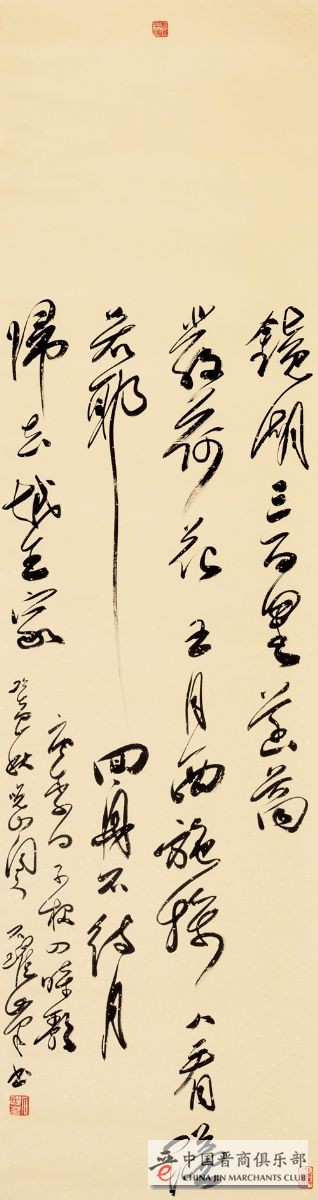 鏡湖三百里菡萏
發荷花五月西施採人看隘
若耶回舟不待月
歸去越王家
唐李白子夜四時歌
書
中国晋商俱乐部
CHINA JIN MARCHANTS CLUB